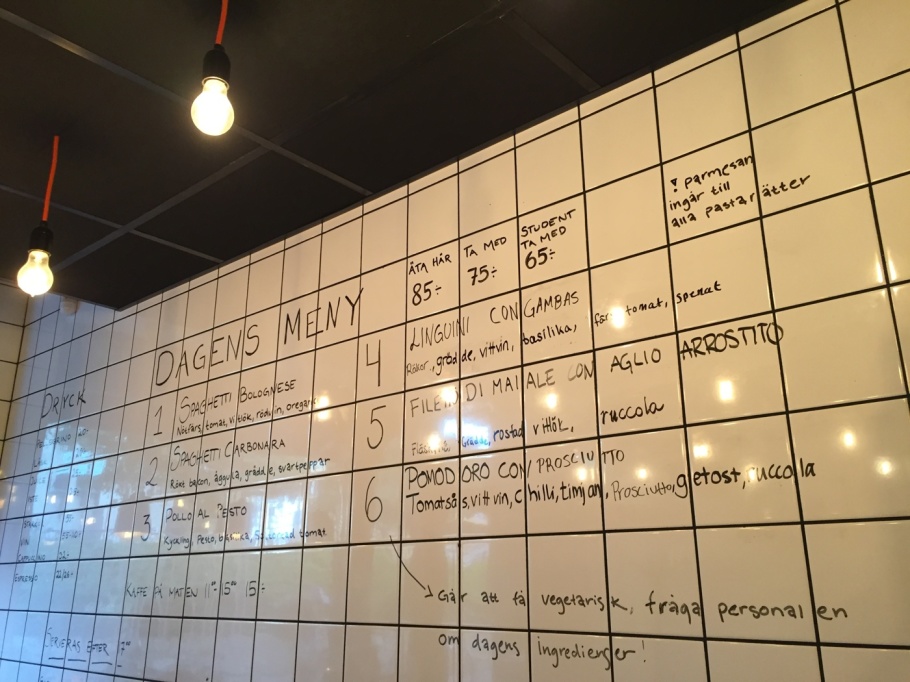 DAGENS MENY
ÄTA HÄR
85:-
TA MED
75:-
STUDENT
TA MED
65:-
! parmesan
ingår till
alla pastarätter
1 SPAGHETTI BOLOGNESE
Nötfärs, tomat, vitlök, rödvin, oregano
2 SPAGHETTI CARBONARA
Rökt bacon, äggula, grädde, svartpeppar
3 POLLO AL PESTO
Kyckling, Pesto, basilika, tomat
4 LINGUINI CON GAMBAS
Räkor, grädde, vittvin, basilika, tomat, spenat
5 FILETTO DI MAIALE CON AGLIO ARROSTITO
Grädde, rostad vitlök, ruccola
6 POMODORO CON PROSCIUTTO
Tomatsås, vittvin, Chilli, timjan, Prosciutto, getost, ruccolla
Går att få vegetarisk, fråga personalen
om dagens ingredienser!
DRYCK
VIN
CAPPUCCINO
ESPRESSO
KAFFE PÅ MATEN 11⁰⁰-15⁰⁰ 15:-
SERVERAS EFTER